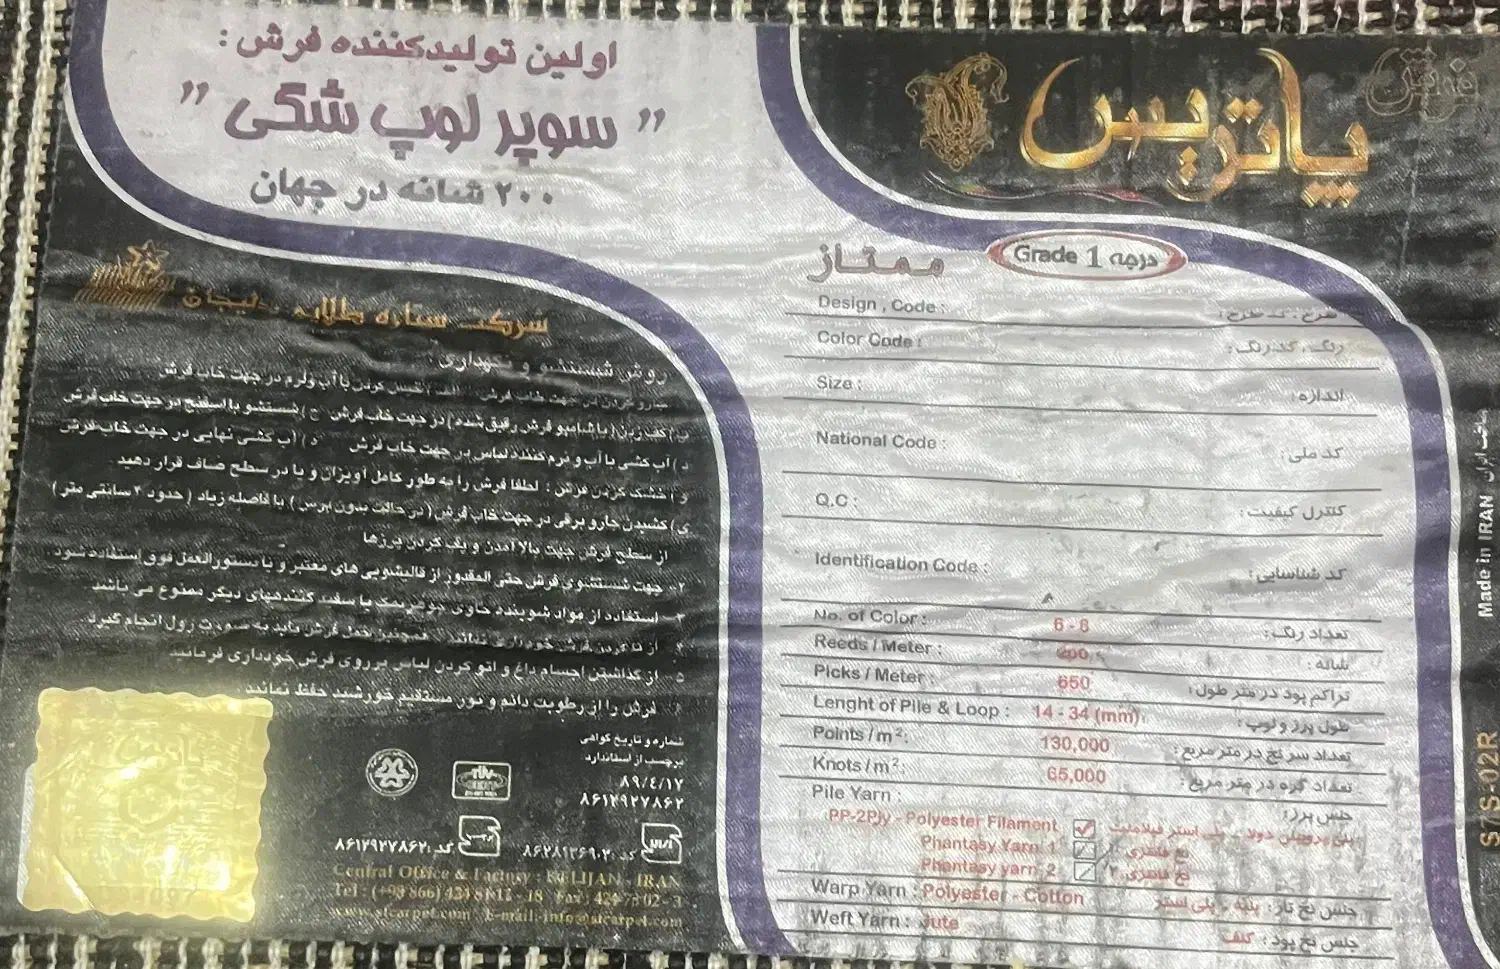 اولین تولیدکننده فرش :
" سوپر لوپ شگی "
۲۰۰ شانه در جهان
شرکت ستاره طلایی دلیجان
روش شستشو و نگهداری :
ب) کف زدن ( با شامپو فرش رقیق شده ) در جهت خاب فرش ج) شستشو با اسفنج در جهت خاب فرش
د) آب کشی با آب و نرم کننده لباس در جهت خاب فرش ه) آب کشی نهایی در جهت خاب فرش
و) خشک کردن فرش : لطفا فرش را به طور کامل آویزان و یا در سطح صاف قرار دهید .
ی) کشیدن جارو برقی در جهت خاب فرش ( در حالت بدون برس ) با فاصله زیاد ( حدود ۳ سانتی متر )
از سطح فرش جهت بالا آمدن و پک کردن پرزها
۲- جهت شستشوی فرش حتی المقدور از قالیشویی های معتبر و با دستورالعمل فوق استفاده شود .
۳- استفاده از مواد شوینده حاوی جوهرنمک یا سفید کنندههای دیگر ممنوع می باشد
۴- از تا کردن فرش خودداری نمائید . همچنین حمل فرش باید به صورت رول انجام گیرد .
۵- از گذاشتن اجسام داغ و اتو کردن لباس بر روی فرش خودداری فرمائید
فرش را از رطوبت دائم و نور مستقیم خورشید حفظ نمائید
شماره و تاریخ گواهی
برچسب از استاندارد
۸۹/٤/۱۷
۸۶۱۲۹۲۷۸۶۲
کد :۸۶۱۲۹۲۷۸۶۲
کد :۸۶۲۸۱۳۶۹۰۲
Central Office & Factory : DELIJAN - IRAN
www.stcarpet.com E-mail: info@stcarpet.com
فرش
پاتریس
ممتاز
Grade 1 درجه
Design , Code : طرح ، کد طرح :
Color Code : رنگ ، کد رنگ :
Size : اندازه :
National Code : کد ملی :
Q.C : کنترل کیفیت :
Identification Code : کد شناسایی :
No. of Color : 6 - 8 تعداد رنگ :
Reeds / Meter : 200 شانه :
Picks / Meter : 650 تراکم پود در متر طول :
Lenght of Pile & Loop : 14 - 34 (mm) طول پرز و لوپ :
Points / m²: 130,000 تعداد سر نخ در متر مربع :
Knots / m²: 65,000 تعداد گره در متر مربع :
Pile Yarn : جنس پرز :
PP-2Ply - Polyester Filament پلی پروپیلن دولا - پلی استر فیلامنت
Phantasy Yarn 1 نخ فانتزی ۱
Phantasy yarn 2 نخ فانتزی ۲
Warp Yarn : Polyester - Cotton جنس نخ تار : پنبه - پلی استر
Weft Yarn : Jute جنس نخ پود : کنف
Made in IRAN بافت ایران
S7S-02R